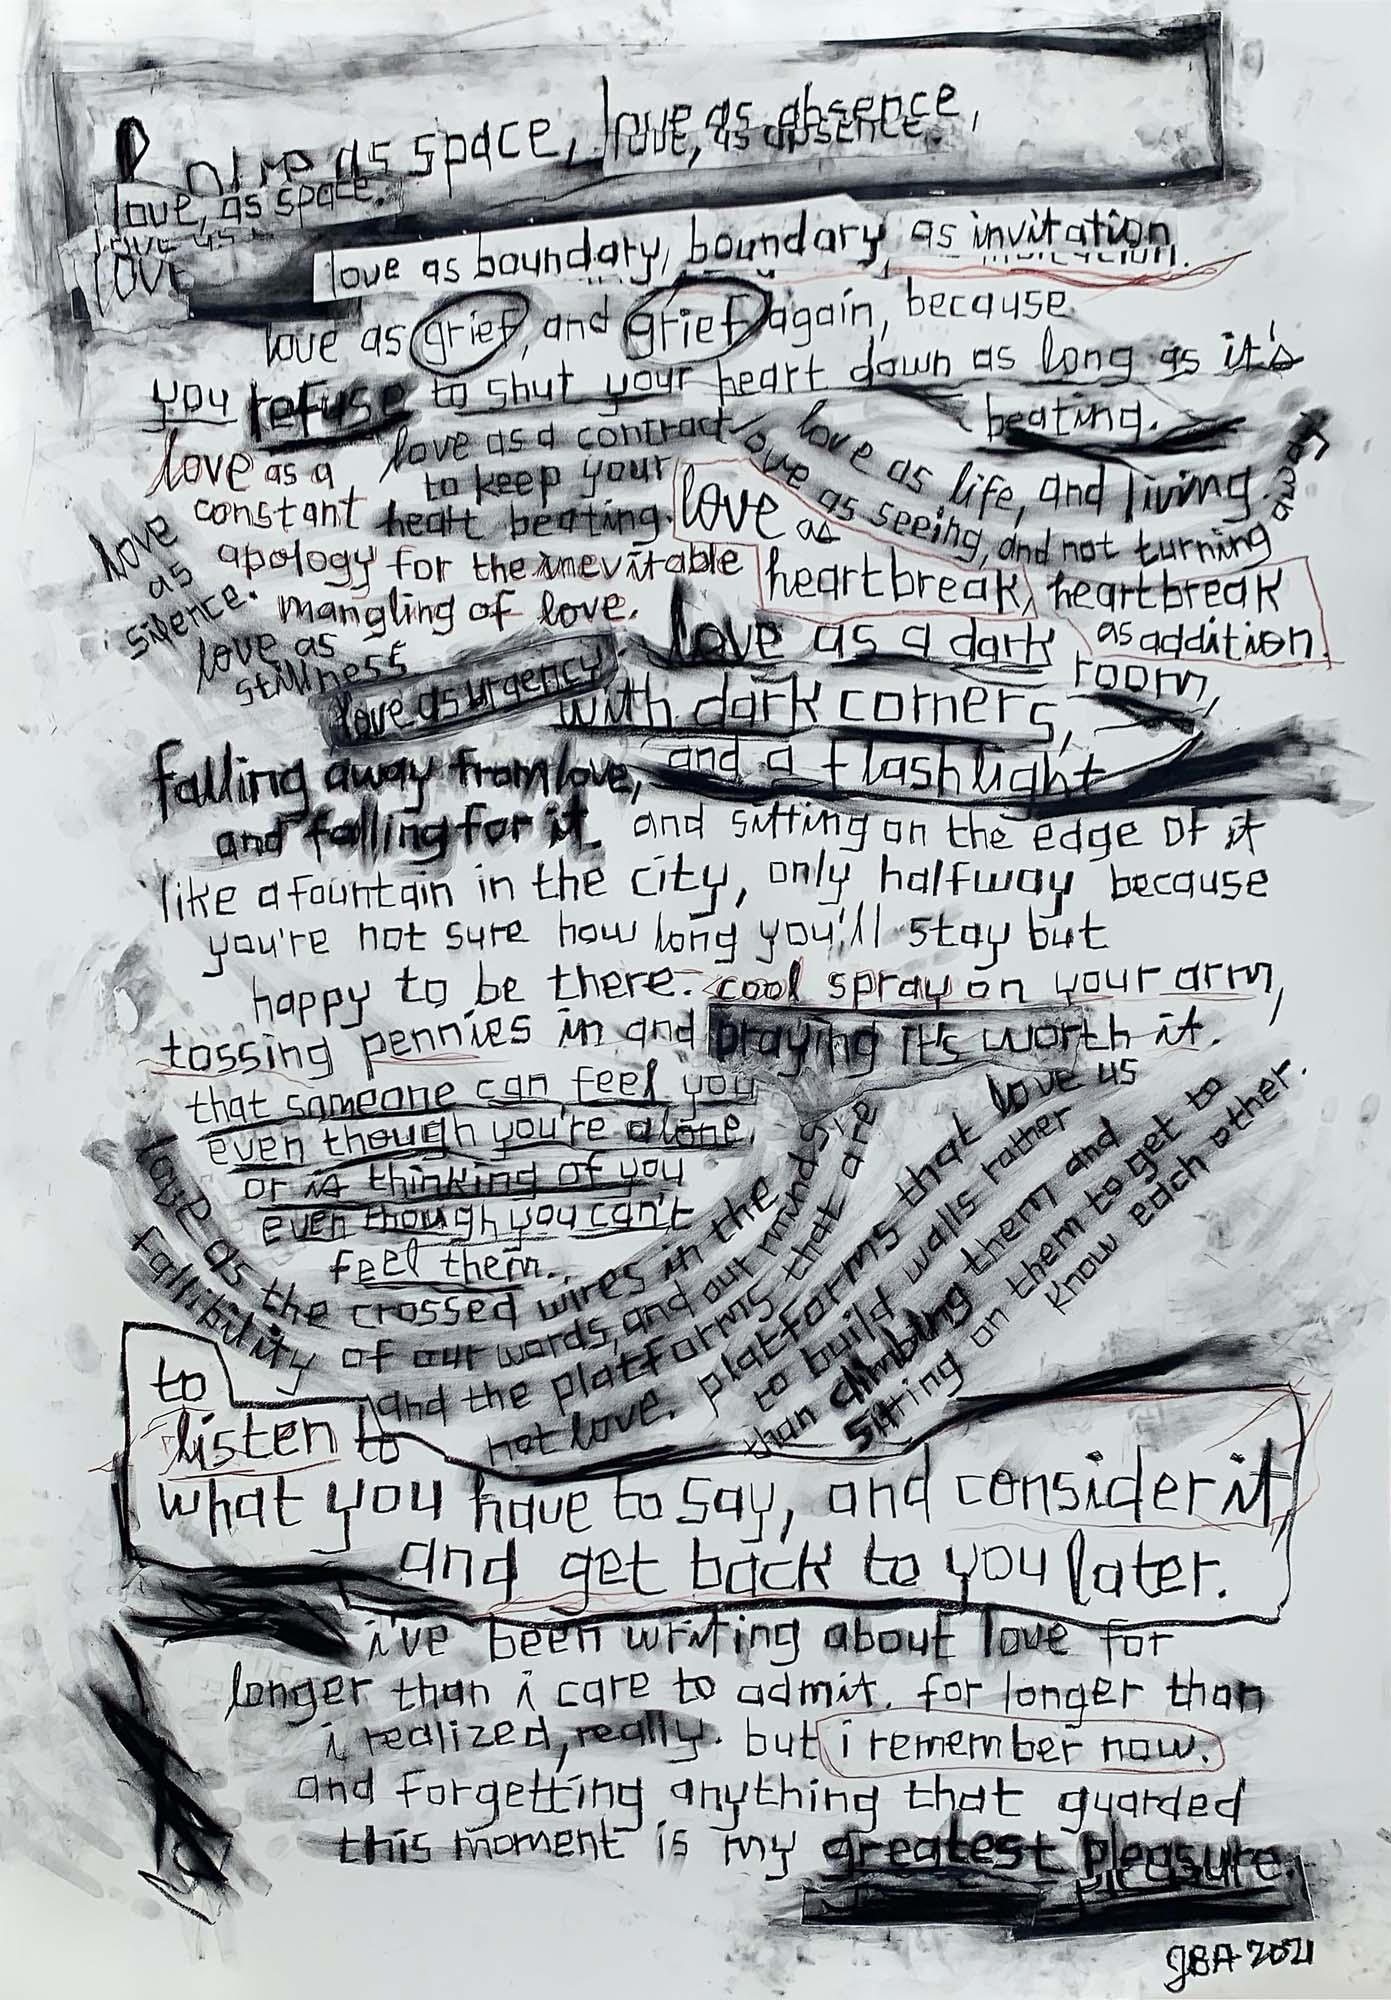 love as space, love, as absence,
love, as space.
love as
love
love as boundary, boundary as invitation
love as grief, and grief again, because
you refuse to shut your heart down as long as it's
beating.
love as a
constant
apology for the inevitable
mangling of love.
love as a contract
to keep your
heart beating.
love as life, and living
love as seeing, and not turning
love as
heartbreak, heartbreak
as addition.
love
as
silence.
love as
stillness
love as urgency
love as a dark
room,
with dark corners,
and a flashlight
falling away from love,
and falling for it
and sitting on the edge of it
like a fountain in the city, only halfway because
you're not sure how long you'll stay but
happy to be there. cool spray on your arm,
tossing pennies in and praying it's worth it.
that someone can feel you
even though you're alone,
or is thinking of you
even though you can't
feel them.
love as the crossed wires in the
fallibility of our words, and our minds
and the platforms that are
not love. platforms that love us
to build walls rather
than climbing them and
sitting on them to get to
know each other.
to
listen to
what you have to say, and consider it,
and get back to you later.
i've been writing about love for
longer than i care to admit. for longer than
i realized, really. but i remember now.
and forgetting anything that guarded
this moment is my greatest pleasure.
JBA 2021